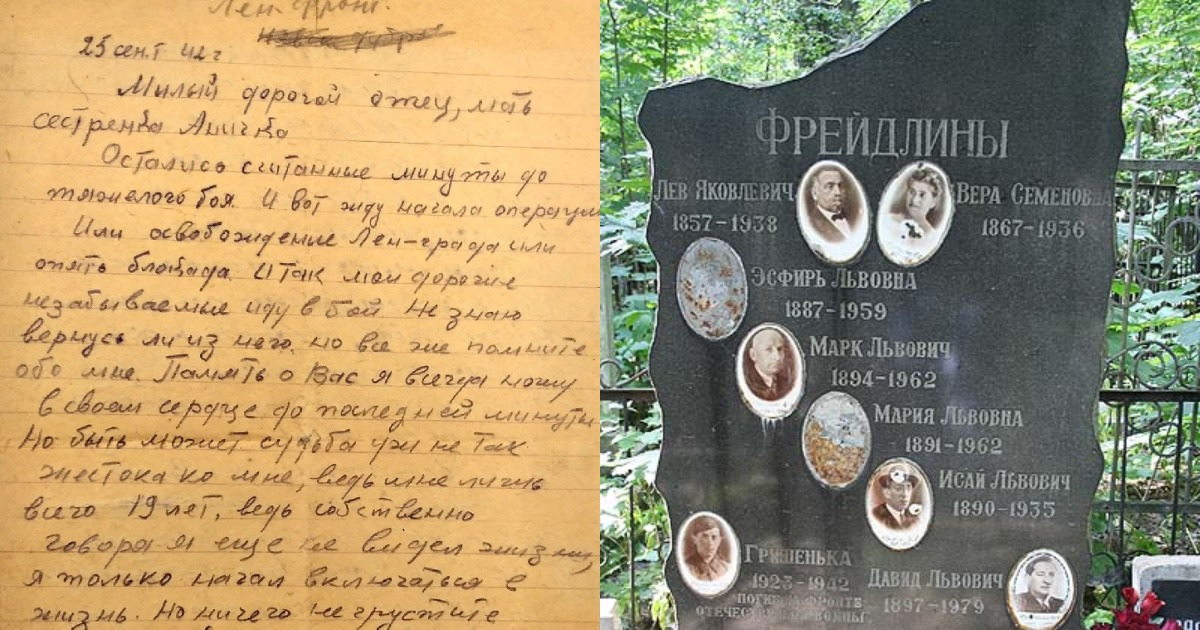 Лен. Фронт.
25 сент 42 г
Милый дорогой отец, мать
сестренка Аничка
Остались считанные минуты до
тяжелого боя. И вот жду начала операции
Или освобождение Лен-града или
опять блокада. Итак мои дорогие
незабываемые иду в бой. Не знаю
вернусь ли из него, но все же помните
обо мне. Память о Вас я всегда ношу
в своем сердце до последней минуты
Но быть может судьба уж не так
жестока ко мне, ведь мне лишь
всего 19 лет, ведь собственно
говоря я еще не видел жизни,
я только начал включаться в
жизнь. Но ничего не грустите
ФРЕЙДЛИНЫ
ЛЕВ ЯКОВЛЕВИЧ
1857-1938
ВЕРА СЕМЕНОВНА
1867-1936
ЭСФИРЬ ЛЬВОВНА
1887-1959
МАРК ЛЬВОВИЧ
1894-1962
МАРИЯ ЛЬВОВНА
1891-1962
ИСАЙ ЛЬВОВИЧ
1890-1935
ГРИШЕНЬКА
1923-1942
ПОГИБ НА ФРОНТЕ
ОТЕЧЕСТВ. ВОЙНЫ.
ДАВИД ЛЬВОВИЧ
1897-1979